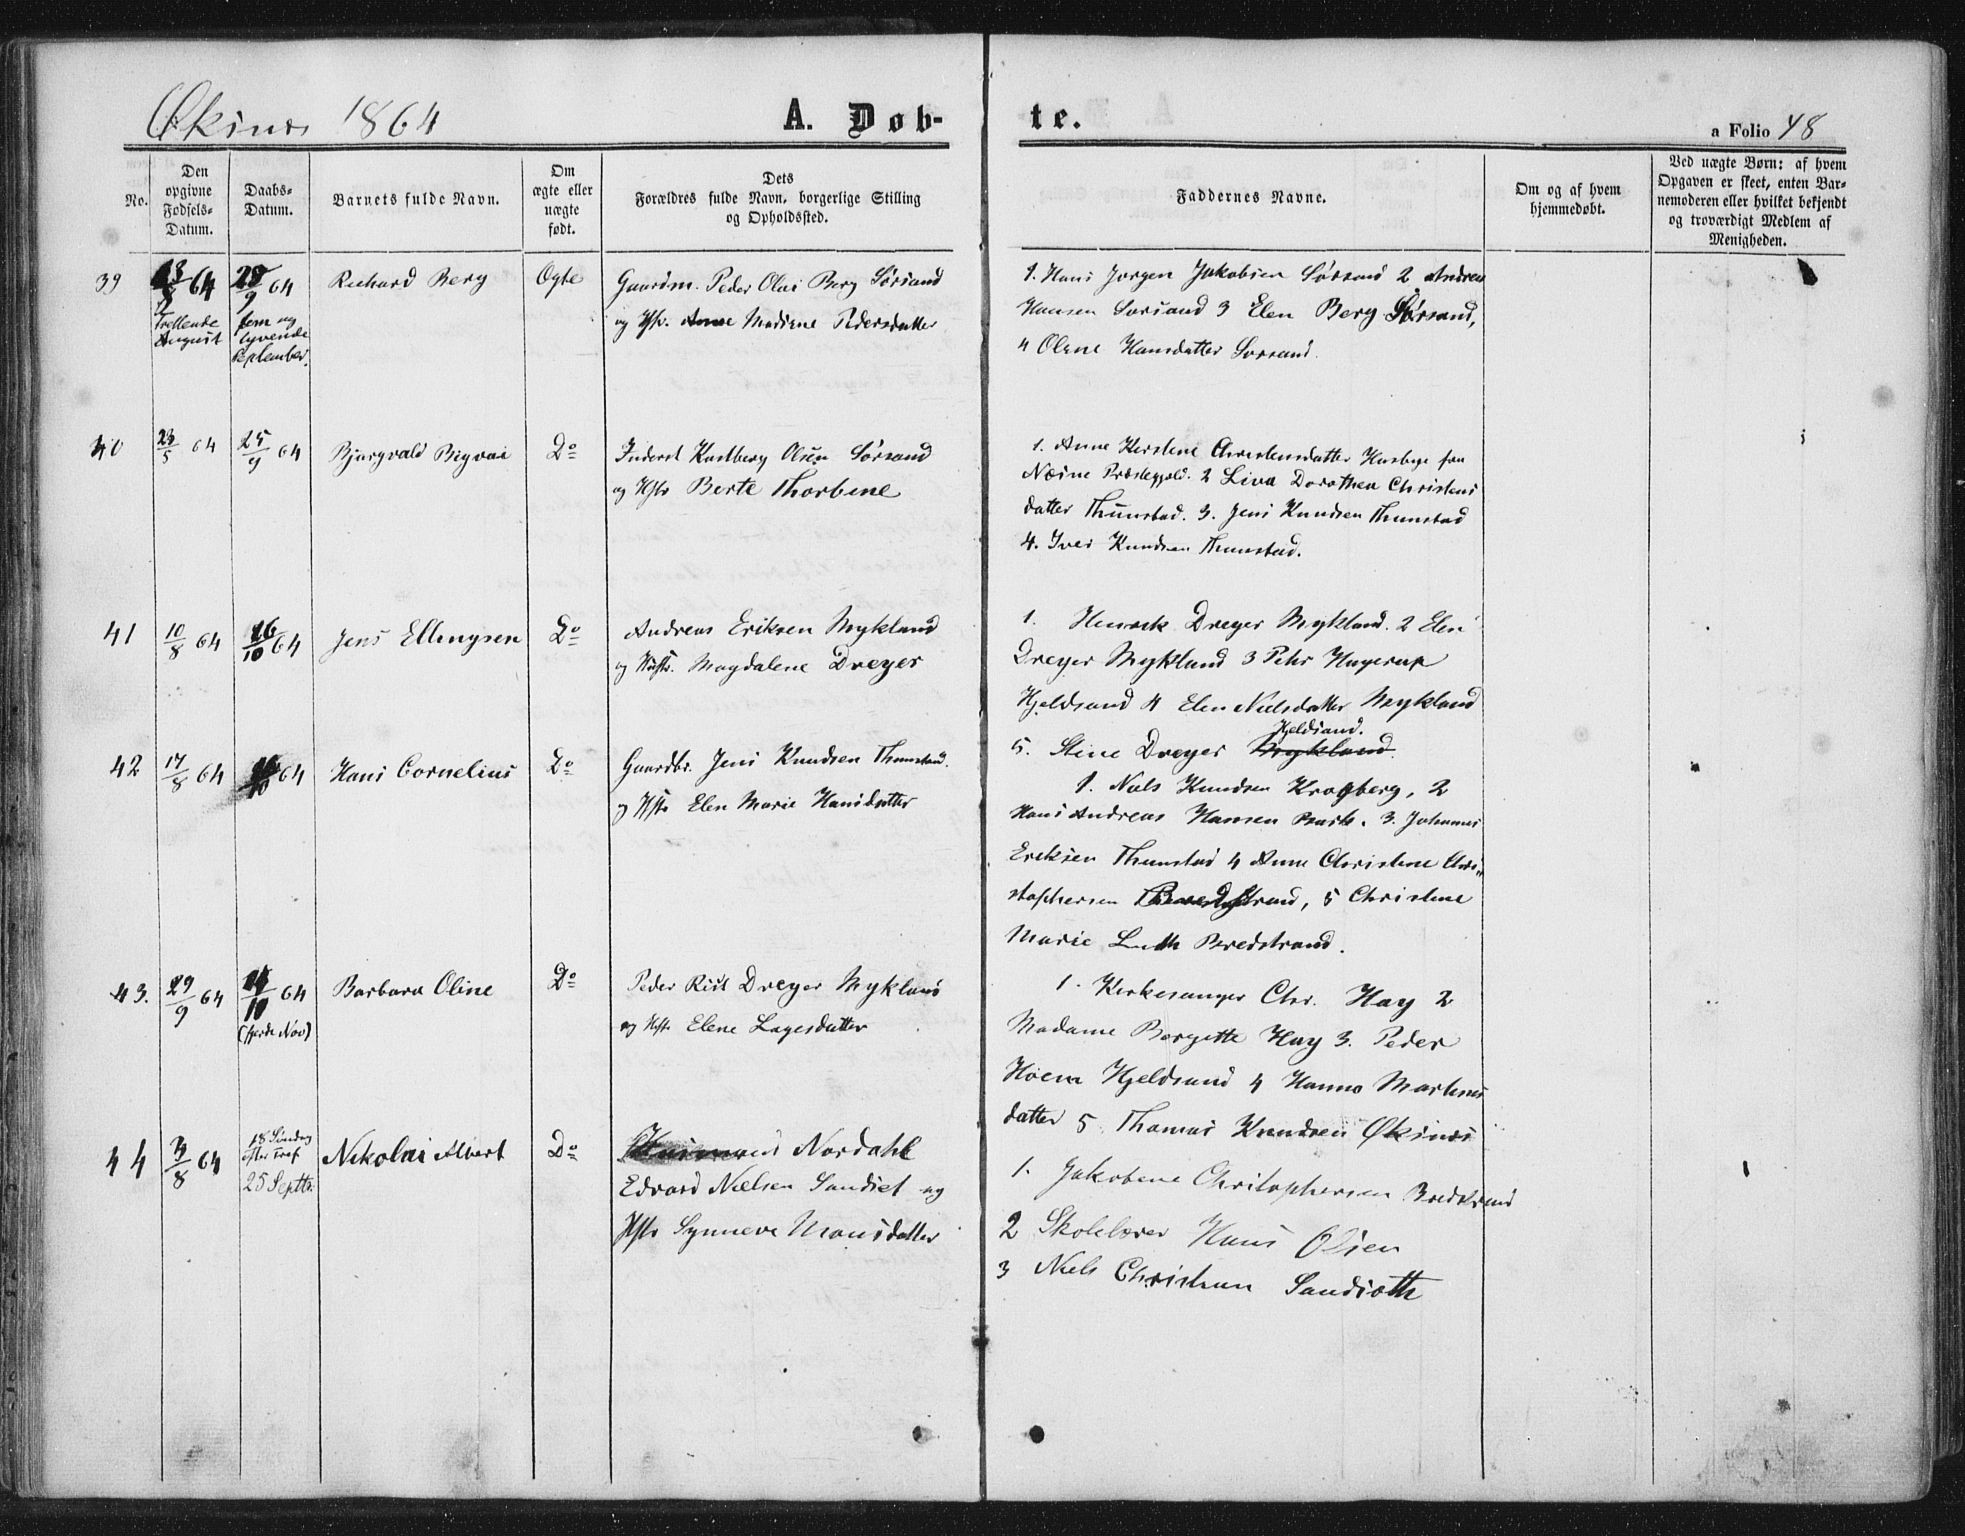 Øksnes 1864
A. Døb-
te.
a Folio 48
No.
Den opgivne Fødsels-Datum.
Daabs-Datum.
Barnets fulde Navn.
Om ægte eller uægte født.
Dets Forældres fulde Navn, borgerlige Stilling og Opholdssted.
Faddernes Navne.
Om og af hvem hjemmedøbt.
Ved uægte Børn: af hvem Opgaven er skeet, enten Barnemoderen eller hvilket bekjendt og troværdigt Medlem af Menigheden.
39
8 64
Trettende August
25/9 64
fem og tyvende September.
Richard Berg
Ægte
Gaardm. Peder Olai Berg Sørsand
og Hstr. Anne Mariene Pedersdatter
1. Hans Jørgen Jakobsen Sørsand 2 Andreas
Hansen Sørsand 3 Elen Berg Sørsand,
4 Olene Hansdatter Sørsand.
40
23/5 64
25/9 64
Bjurgvald Bigvai
Do
Inderst Kastberg Olsen Sørsand
og Hstr Berte Thorbine
1. Anne Kerstine Christensdatter Husbye fra
Næsne Præstegjeld. 2 Liva Dorothea Christens
datter Thunstad. 3. Jens Knudsen Thunstad
4. Iver Knudsen Thunstad.
41
10/8 64
16/10 64
Jens Ellingsen
Do
Andreas Eriksen Mykland
og Hustr. Magdalene Dreyer
1. Henrick Dreyer Mykland. 2 Elen
Dreyer Mykland 3 Peter Hagerup
Hjeldsand 4 Elen Nielsdatter Mykland
Hjeldsand.
5. Stine Dreyer Mykland.
42
17/8 64
16/10 64
Hans Cornelius
Do
Gaardbr. Jens Knudsen Thunstad.
og Hstr Elen Marie Hansdatter
1. Niels Knudsen Kragberg, 2
Hans Andreas Hansen 3. Johannes
Eriksen Thunstad 4 Anne Christine Chri-
stophersen Bredstrand, 5 Christine
Marie Bredstrand.
43.
29/9 64
10 64
(fjerde Nov)
Barbara Oline
Do
Peder Rist Dreyer Mykland
og Hstr Elene Lagesdatter
1. Kirkesanger Chr. Hay 2
Madame Bergitte Hay 3. Peder
Høen Hjeldsand 4 Hanna Martinus
datter 5 Thomas Knudsen Øksnes
44
8 64
18 Søndag
efter Tref
25 Septbr.
Nikolai Albert
Do
Husmand Nordahl
Edvard Nielsen Sandset og
Hstr Synneve Monsdatter
1. Jakobine Christophersen Bredstrand
2 Skolelærer Hans Olsen
3 Niels Christian Sandsøth